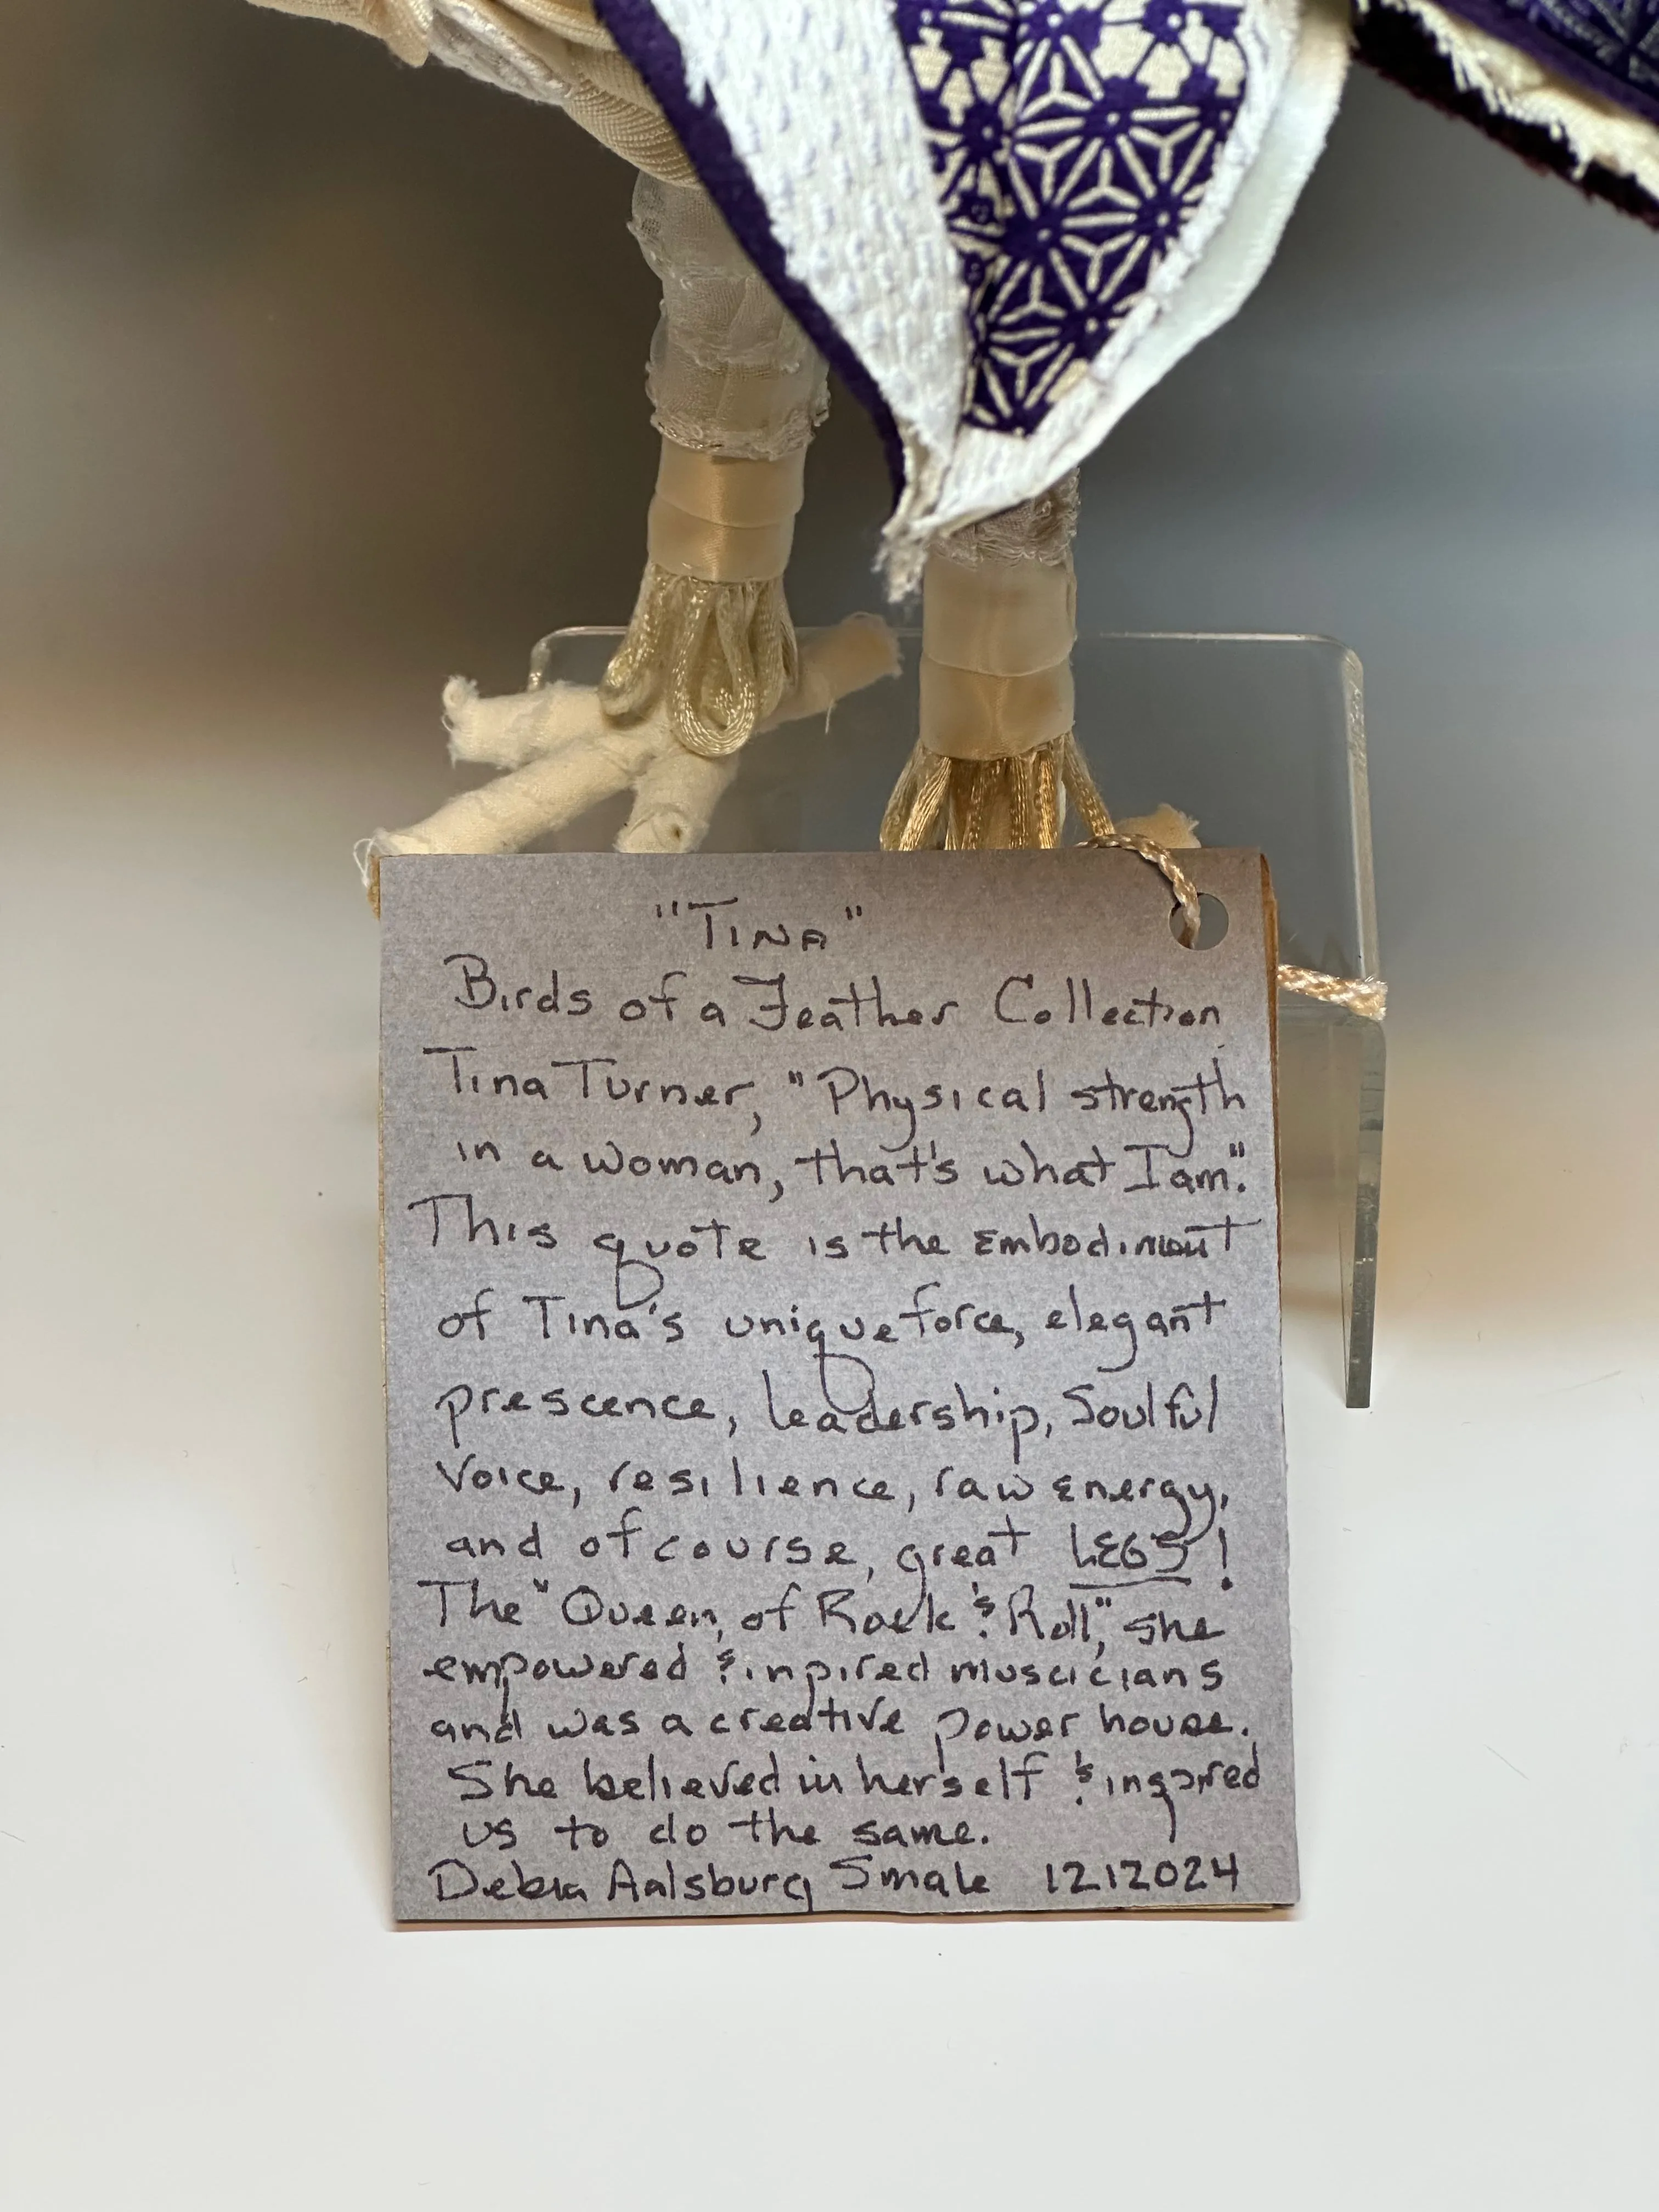 "TINA"
Birds of a Feather Collection
Tina Turner, "Physical strength
in a woman, that's what I am".
This quote is the Embodiment
of Tina's unique force, elegant
prescence, leadership, Soulful
Voice, resilience, raw Energy,
and of course, great LEGS!
The "Queen, of Rock & Roll", she
empowered & inpired muscicians
and was a creative power house.
She believed in herself & inspired
us to do the same.
Debra Aalsburg Smale 12.12024